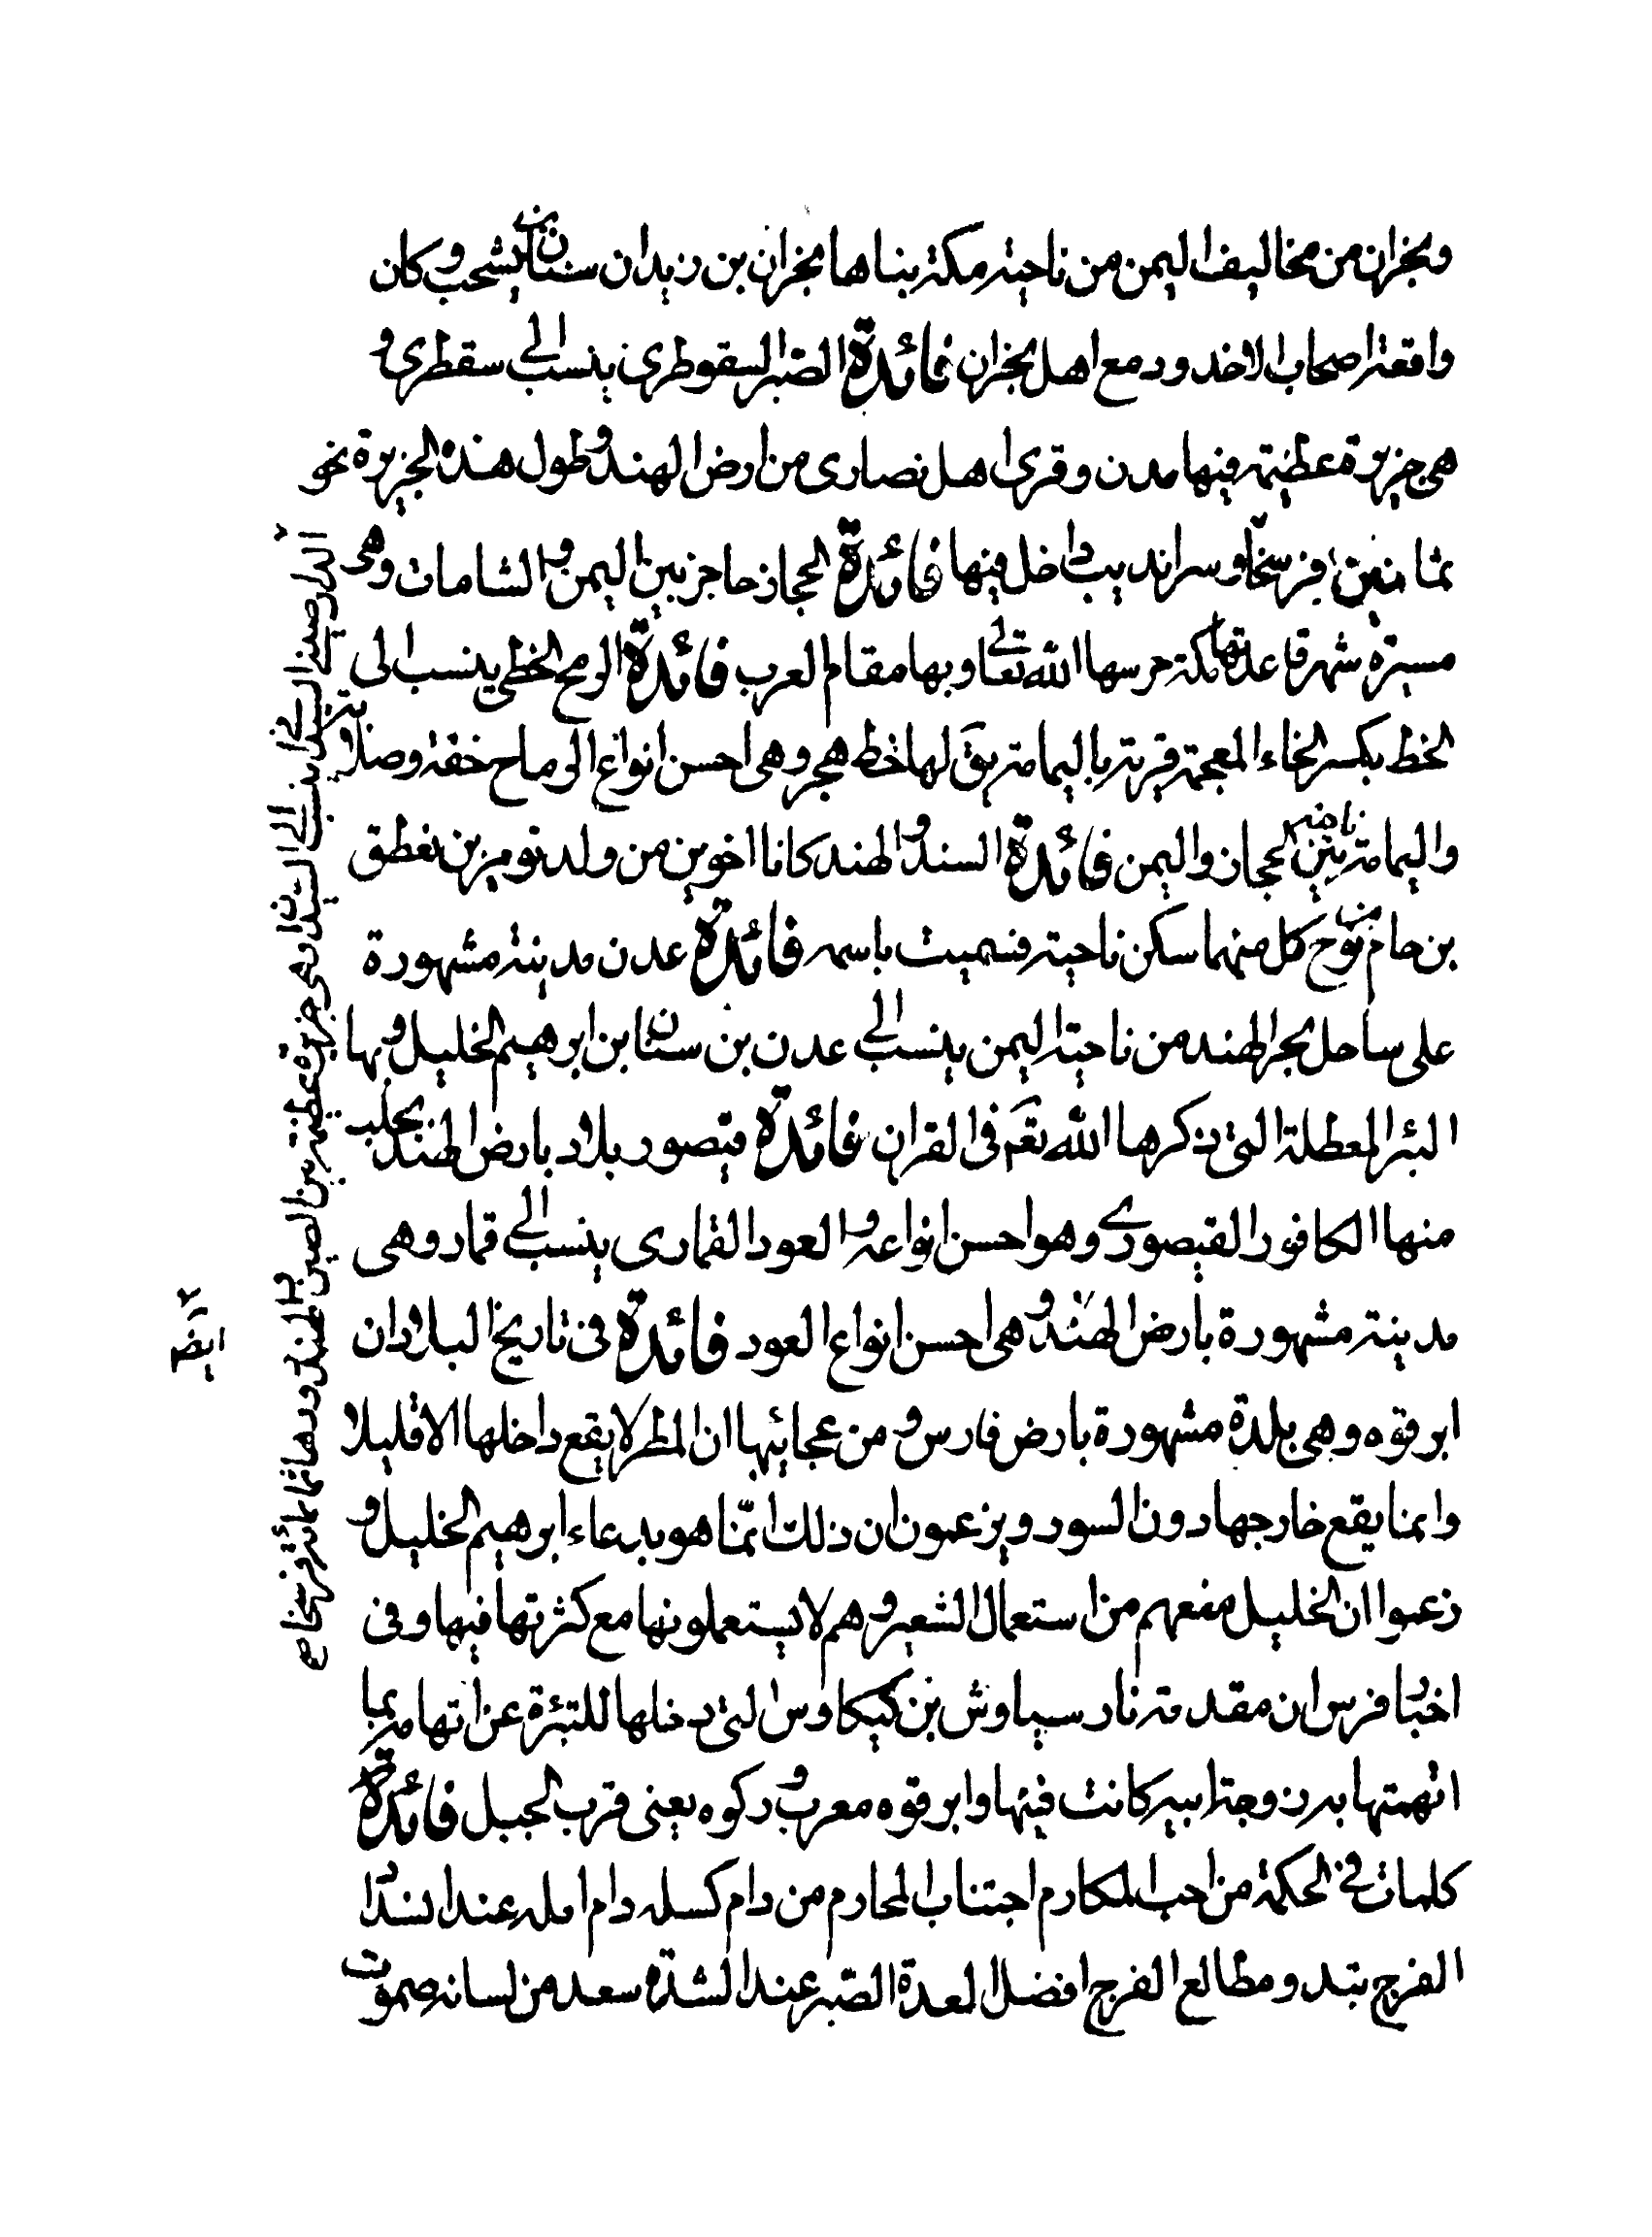 ونجران من مخاليف اليمن من ناحية مكة بناها نجران بن زيدان سبا بن يشحب وكان
واقعة اصحاب الاخدود مع اهل نجران فائدة الصبر السقوطرى ينسب الى سقطرى و
هى جزيرة عظيمة فيها مدن وقرى اهل نصارى من ارض الهند وطول هذه الجزيرة نحو
ثمانين فرسخا وسرانديب داخل فيها فائدة الحجاز حاجز بين اليمن والشامات وهى
مسيرة شهر قاعدتها مكة حرسها الله تعالى وبها مقام العرب فائدة الرمح الخطى ينسب الى
الخط بكسر الخاء المعجمة قرية باليمامة يق لها خط هجر وهى احسن انواع الرماح خفة وصلابة
واليمامة ناحية بين الحجاز واليمن فائدة السند والهند كانا اخوين من ولد توميز بن نغطق
بن حام بن نوح كل منهما سكن ناحية فسميت باسمه فائدة عدن مدينة مشهورة
على ساحل بحر الهند من ناحية اليمن ينسب الى عدن بن سنان بن ابرهيم الخليل وبها
البئر المعطلة التى ذكرها الله تعم فى القران فائدة قيصور بلاد بارض الهند يجلب
منها الكافور القيصورى وهو احسن انواعه والعود القمارى ينسب الى قمار وهى
مدينة مشهورة بارض الهند وهى احسن انواع العود فائدة فى تاريخ البلادان
ابرقوه وهى بلدة مشهورة بارض فارس ومن عجائبها ان المطر لا يقع داخلها الا قليلا
وانما يقع خارجها دون السور ويزعمون ان ذلك انّما هو بدعاء ابرهيم الخليل و
زعموا ان الخليل منعهم من استعمال الشعير وهم لا يستعملونها مع كثرتها فيها وفى
اخبار فرس ان مقدمة نار سياوش بن كيكاوس التى دخلها للتبرئة عن اتهامه بما
اتهمتها به زوجة ابيه كانت فيها وابرقوه معرب در كوه يعنى قرب الجبل فائدة
كلمات فى الحكمة من احب المكارم اجتناب المحارم من دام كسله دام امله عند انسداد
الفرج تبدو مطالع الفرج افضل العدة الصّبر عند الشدة سعد من لسانه صموت
الدار صينى السيلانى ينسب الى السيلان وهى جزيرة عظيمة بين الصين والهند دورها ثمانمائة فرسخا
ايضا